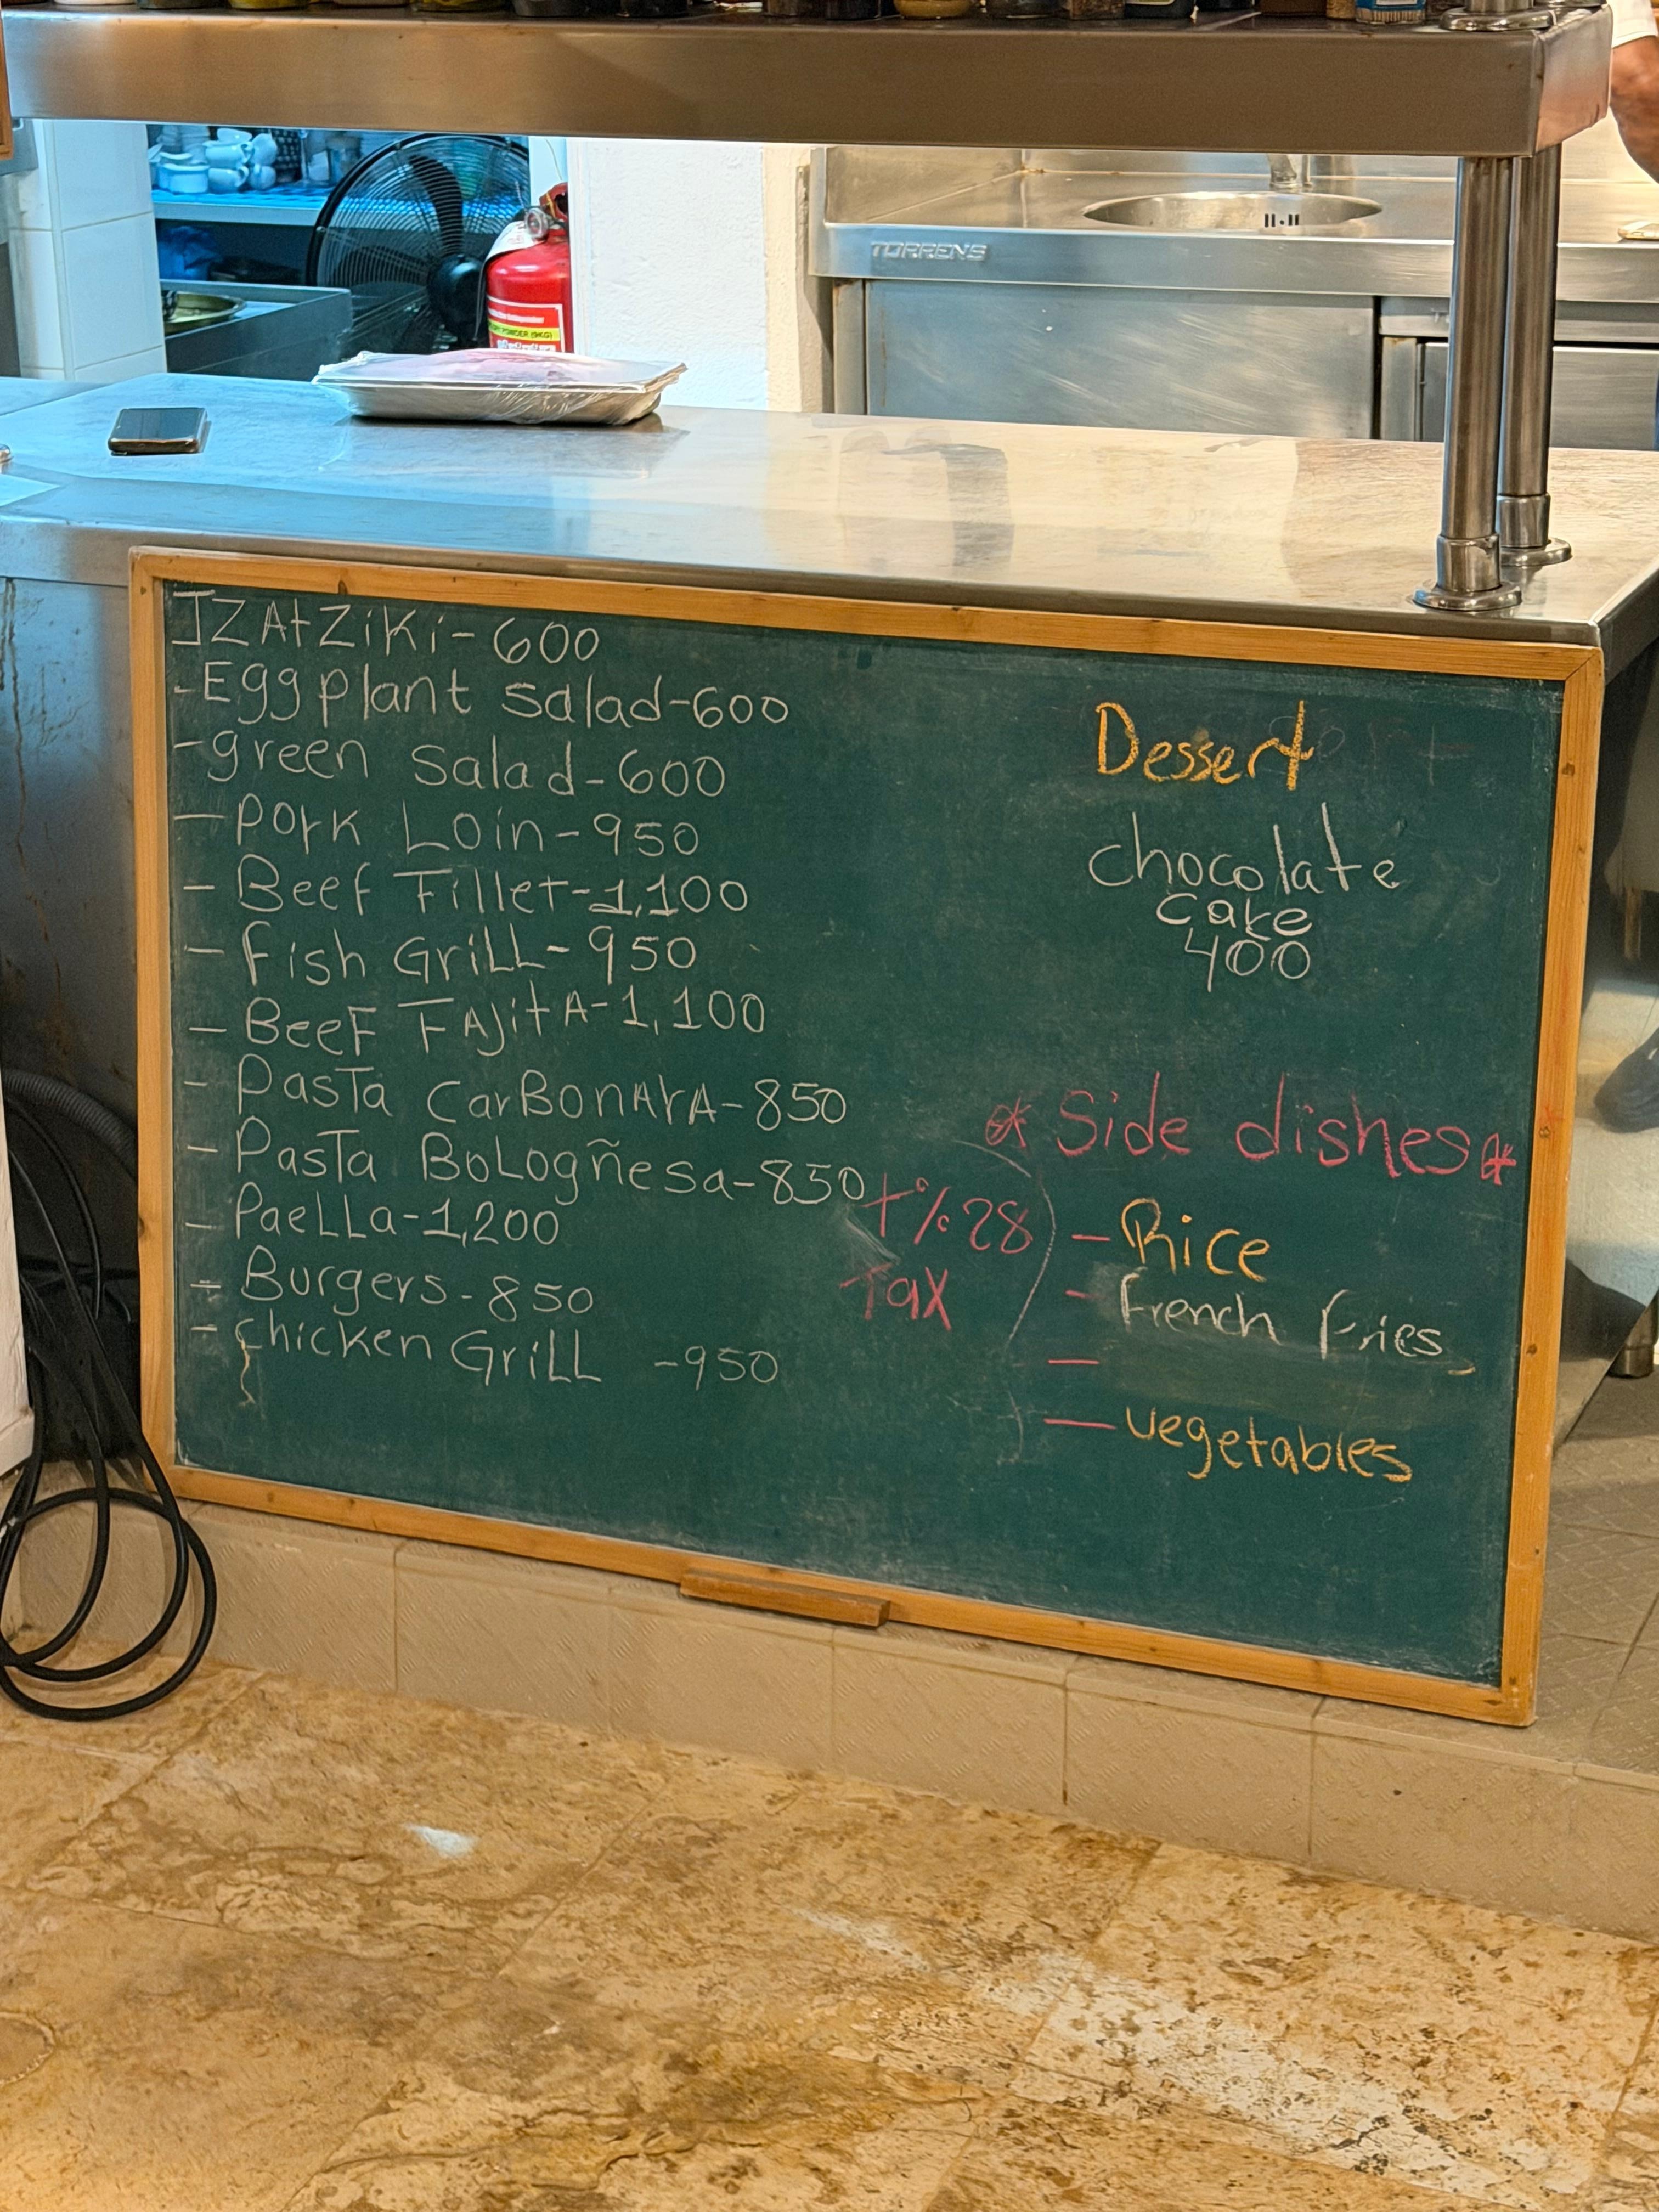 TORRENS
POWDER (6KG)
TZAtZiKi-600
-Eggplant salad-600
-green salad-600
- pork Loin-950
- Beef Fillet-1,100
- fish GriLL-950
- BeeF FAjitA-1,100
- PasTa CarBonArA-850
- PasTa BoLogñesa-850
- PaeLLa-1,200
- Burgers-850
- chicken GriLL -950
+%28
Tax
Dessert
chocolate
cake
400
* Side dishes *
- Rice
- french fries
-
- vegetables